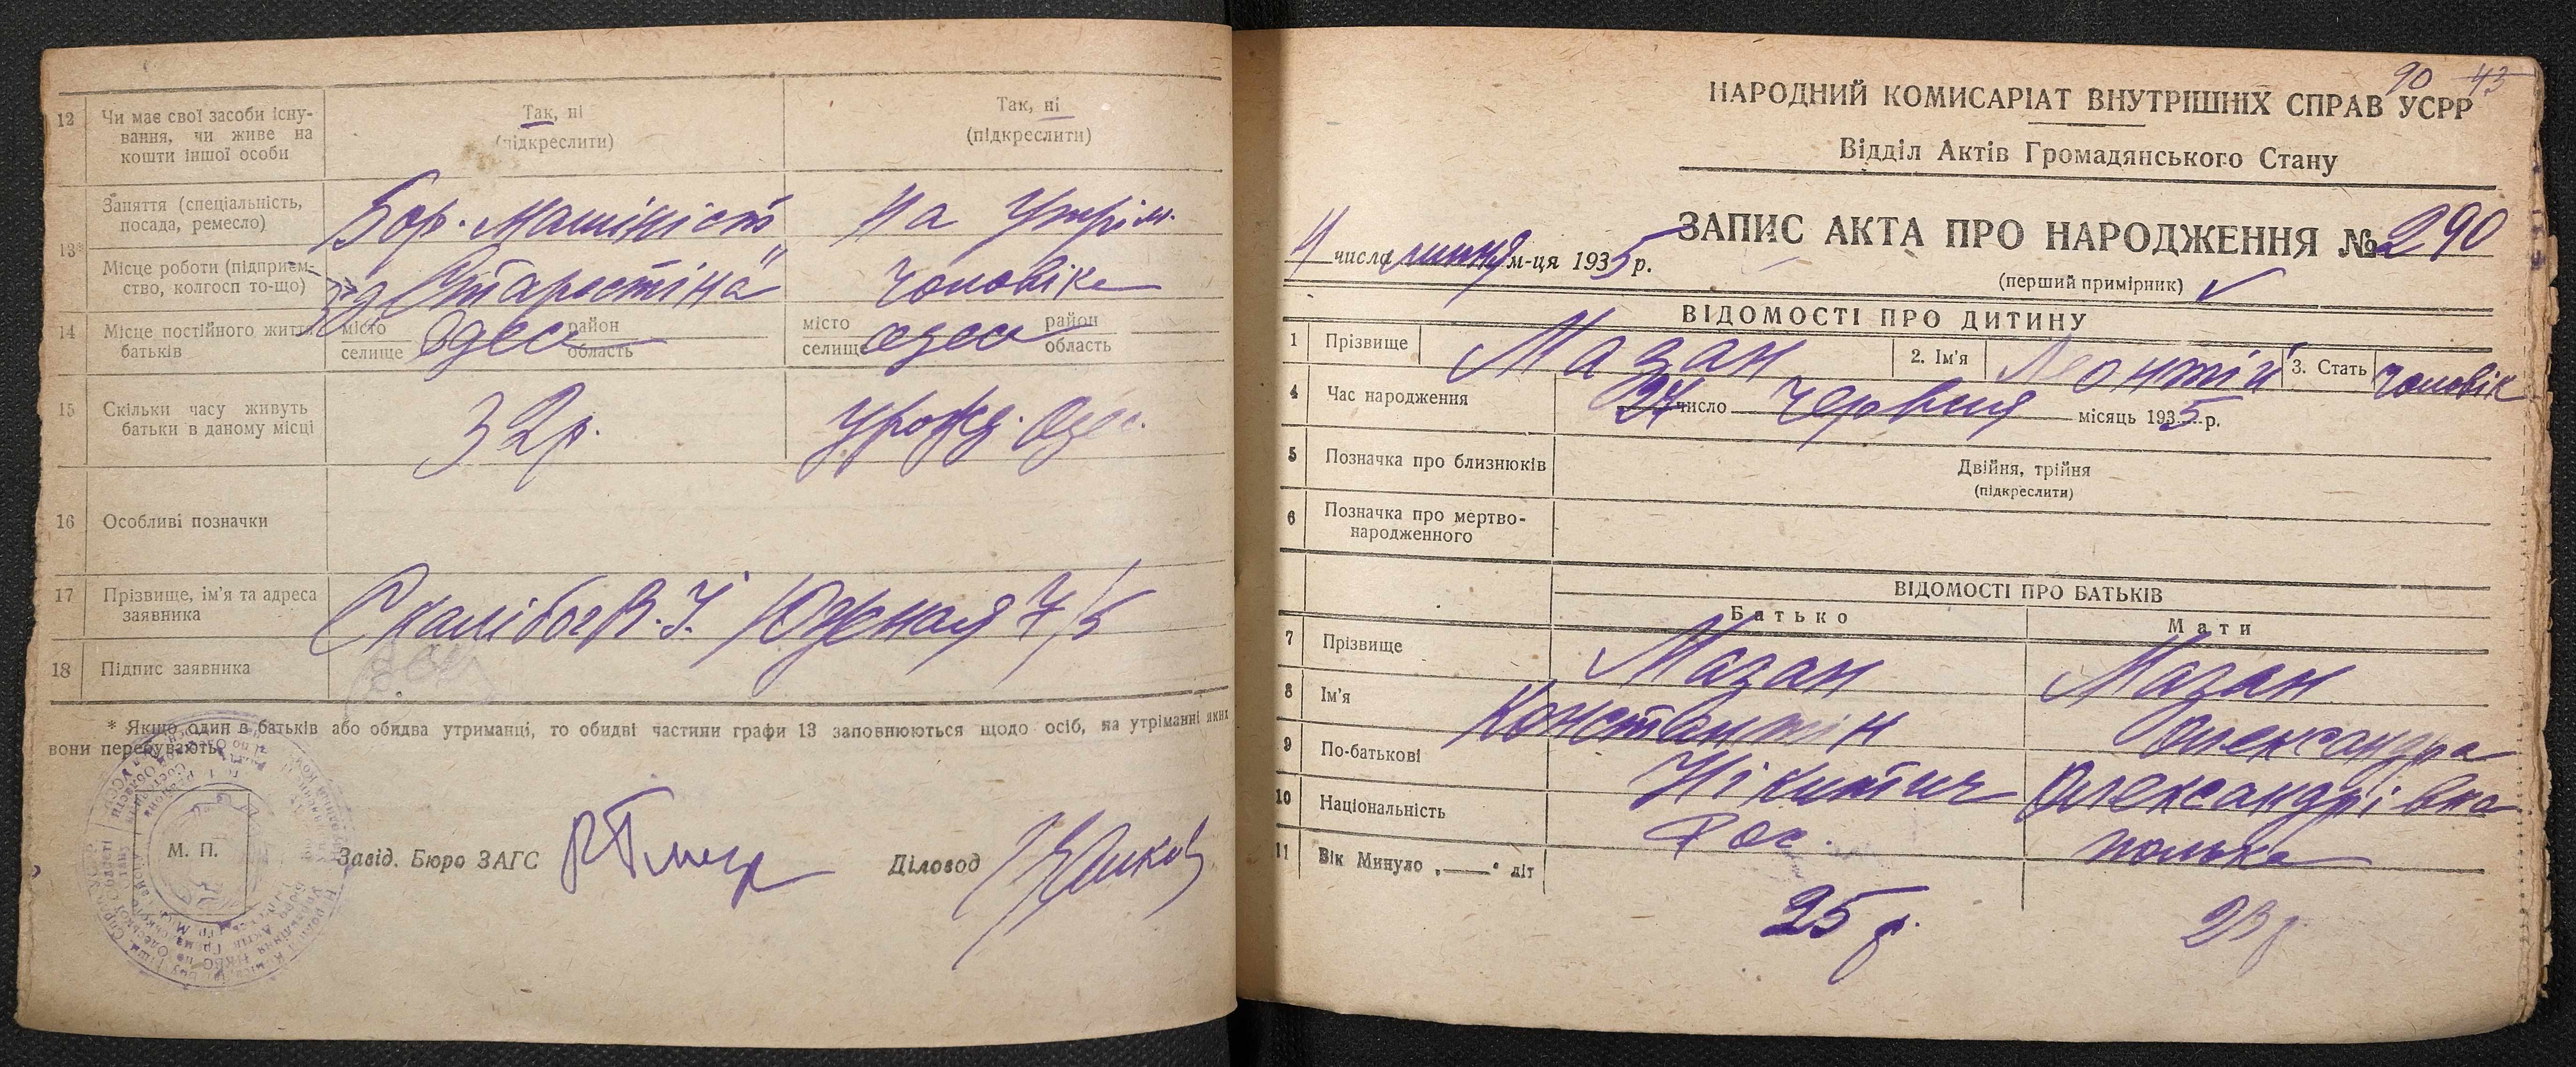 12 Чи має свої засоби існу-
вання, чи живе на
кошти іншої особи
Так, ні
(підкреслити)
Так, ні
(підкреслити)
13*
Заняття (спеціальність,
посада, ремесло)
Бор. машініст
на утрім.
Місце роботи (підприєм-
ство, колгосп то-що)
"Старостіна"
чоловіка
14 Місце постійного життя
батьків
місто
селище
Одеса
район
область
місто
селище
Одеса
район
область
15 Скільки часу живуть
батьки в даному місці
32р.
урожд. Одес.
16 Особливі позначки
17 Прізвище, ім'я та адреса
заявника
В. І. Южная 7/5
18 Підпис заявника
* Якщо один з батьків або обидва утриманці, то обидві частини графи 13 заповнюються щодо осіб, на утріманні яких
вони перебувають.
М. П.
Завід. Бюро ЗАГС
Діловод
90 43
НАРОДНИЙ КОМИСАРІАТ ВНУТРІШНІХ СПРАВ УСРР
Відділ Актів Громадянського Стану
ЗАПИС АКТА ПРО НАРОДЖЕННЯ № 290
4 числа липня м-ця 1935 р.
(перший примірник)
ВІДОМОСТІ ПРО ДИТИНУ
1 Прізвище Мазан 2. Ім'я Леонтій 3. Стать чоловік
4 Час народження 24 число червня місяць 1935 р.
5 Позначка про близнюків
Двійня, трійня
(підкреслити)
6 Позначка про мертво-
народженного
ВІДОМОСТІ ПРО БАТЬКІВ
Батько Мати
7 Прізвище Мазан Мазан
8 Ім'я Константин Олександра
9 По-батькові Нікитич Олександрівна
10 Національність Рос. полька
11 Вік Минуло „——" літ 25 р. 23 р.